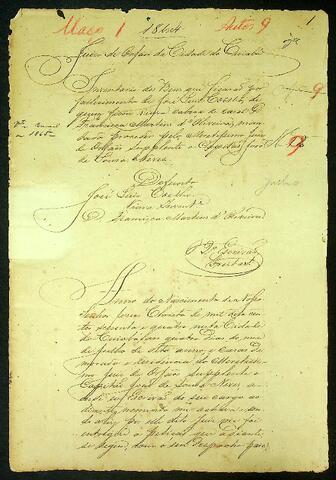 Maço 1 1864 Autos 9 1
Juizo de Orfãos da Cidade de Cuiabá
Inventario dos Bens que ficarão por
fallecimento de José Luis Coelho, de
quem ficou viuva cabeça de casal D.
Francisca Martins d'Oliveira, man-
dado proceder pelo Meretissimo Juiz
de Orfãos Supplente o Capitão José
de Souza Neves
9
Defunto
José Luis Coelho
Viuva Invent.e
D. Francisca Martins d'Oliveira
Anno do Nascimento de Nosso
Senhor Jesus Christo de mil oito cen-
tos sessenta e quatro nesta Cidade
de Cuiabá aos quatro dias do mez
de Julho do dito anno, e casas de
morada e residencia do Meretissi-
mo Juiz de Orfãos Supplente o
Capitão José de Souza Neves a
onde eu Escrivão de seu cargo ao
diante nomeado me achava, on-
de ahi por elle dito Juiz me foi
entregue a Petição que a diante
se segue, com o seu Despacho para